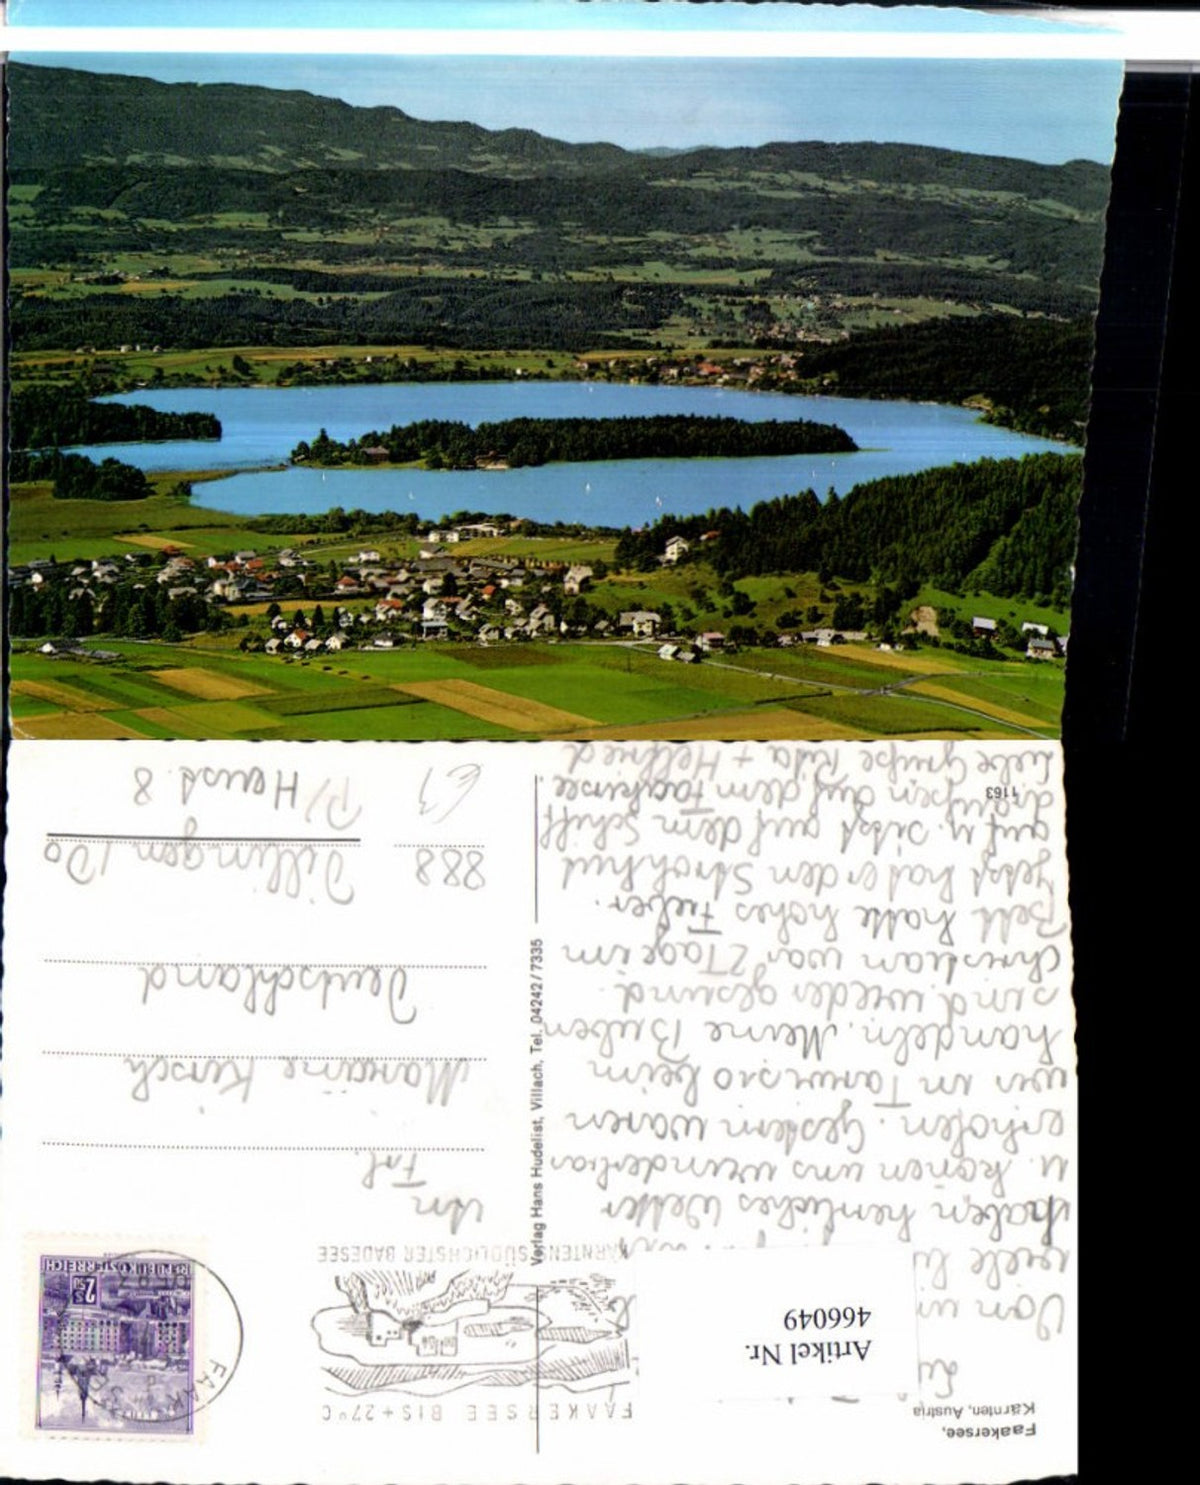 Faakersee,
Kärnten, Austria
Artikel Nr.
466049
Von un
viele
haben herrliches Wetter
u. könen uns wunderbar
erholen. Gestern waren
wir in Tarvisio beim
handeln. Meine Buben
sind wieder gesund.
Christian war 2 Tage im
Bett hatte hohes Fieber.
Jetzt hat er den Strohhut
auf u. sitzt auf dem Schiff
draußen auf dem Faakersee
Liebe Grüße Rita + Helfried
1163
Verlag Hans Hudelist, Villach, Tel. 04242/7335
FAAKERSEE BIS +27°C
KÄRNTENS SÜDLICHSTER BADESEE
REPUBLIK ÖSTERREICH
S 2.50
FAAK
An
Frl.
Marianne Kirsch
Deutschland
888 Dillingen / Do
P/ Hausd. 8